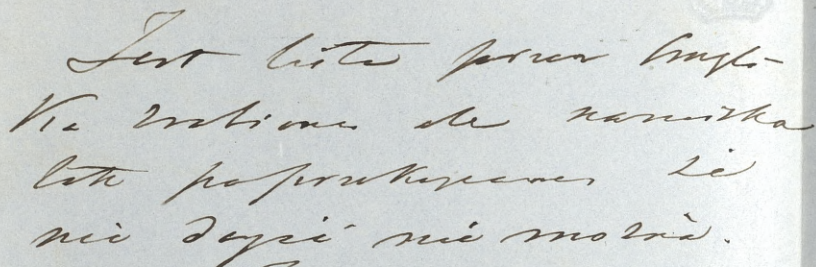 Jest lista przez Angli-
ka zrobiona ale nazwiska
tak poprzekręcane że
nic dojść nie można.